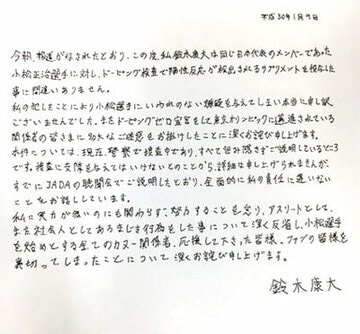 平成30年1月9日
今朝、報道がなされたとおり、この度、私鈴木康大は同じ日本代表のメンバーであった
小松正治選手に対し、ドーピング検査で陽性反応が検出されるサプリメントを投与した
事に間違いありません。
私の犯したことにより小松選手にいわれのない嫌疑を与えてしまい本当に申し訳
ございませんでした。またドーピングゼロ宣言をした東京オリンピックに邁進されている
関係者の皆さまに多大なご迷惑をお掛けしたことに深くお詫び申し上げます。
本件については、現在、警察で捜査中であり、すべて包み隠さずご説明しているところ
です。捜査に支障を与えてはいけないとのことから、詳細は申し上げられませんが、
すでにJADAの聴聞会でご説明したとおり、全面的に私の責任に違いない
ことをお話ししています。
私に実力が無いのにも関わらず、努力することを怠り、アスリートとして、
また社会人としてあるまじき行為をした事について深く反省し、小松選手
を始めとする全てのカヌー関係者、応援して下さった皆様、ファンの皆様を
裏切ってしまったことについて深くお詫び申し上げます。
鈴木康大